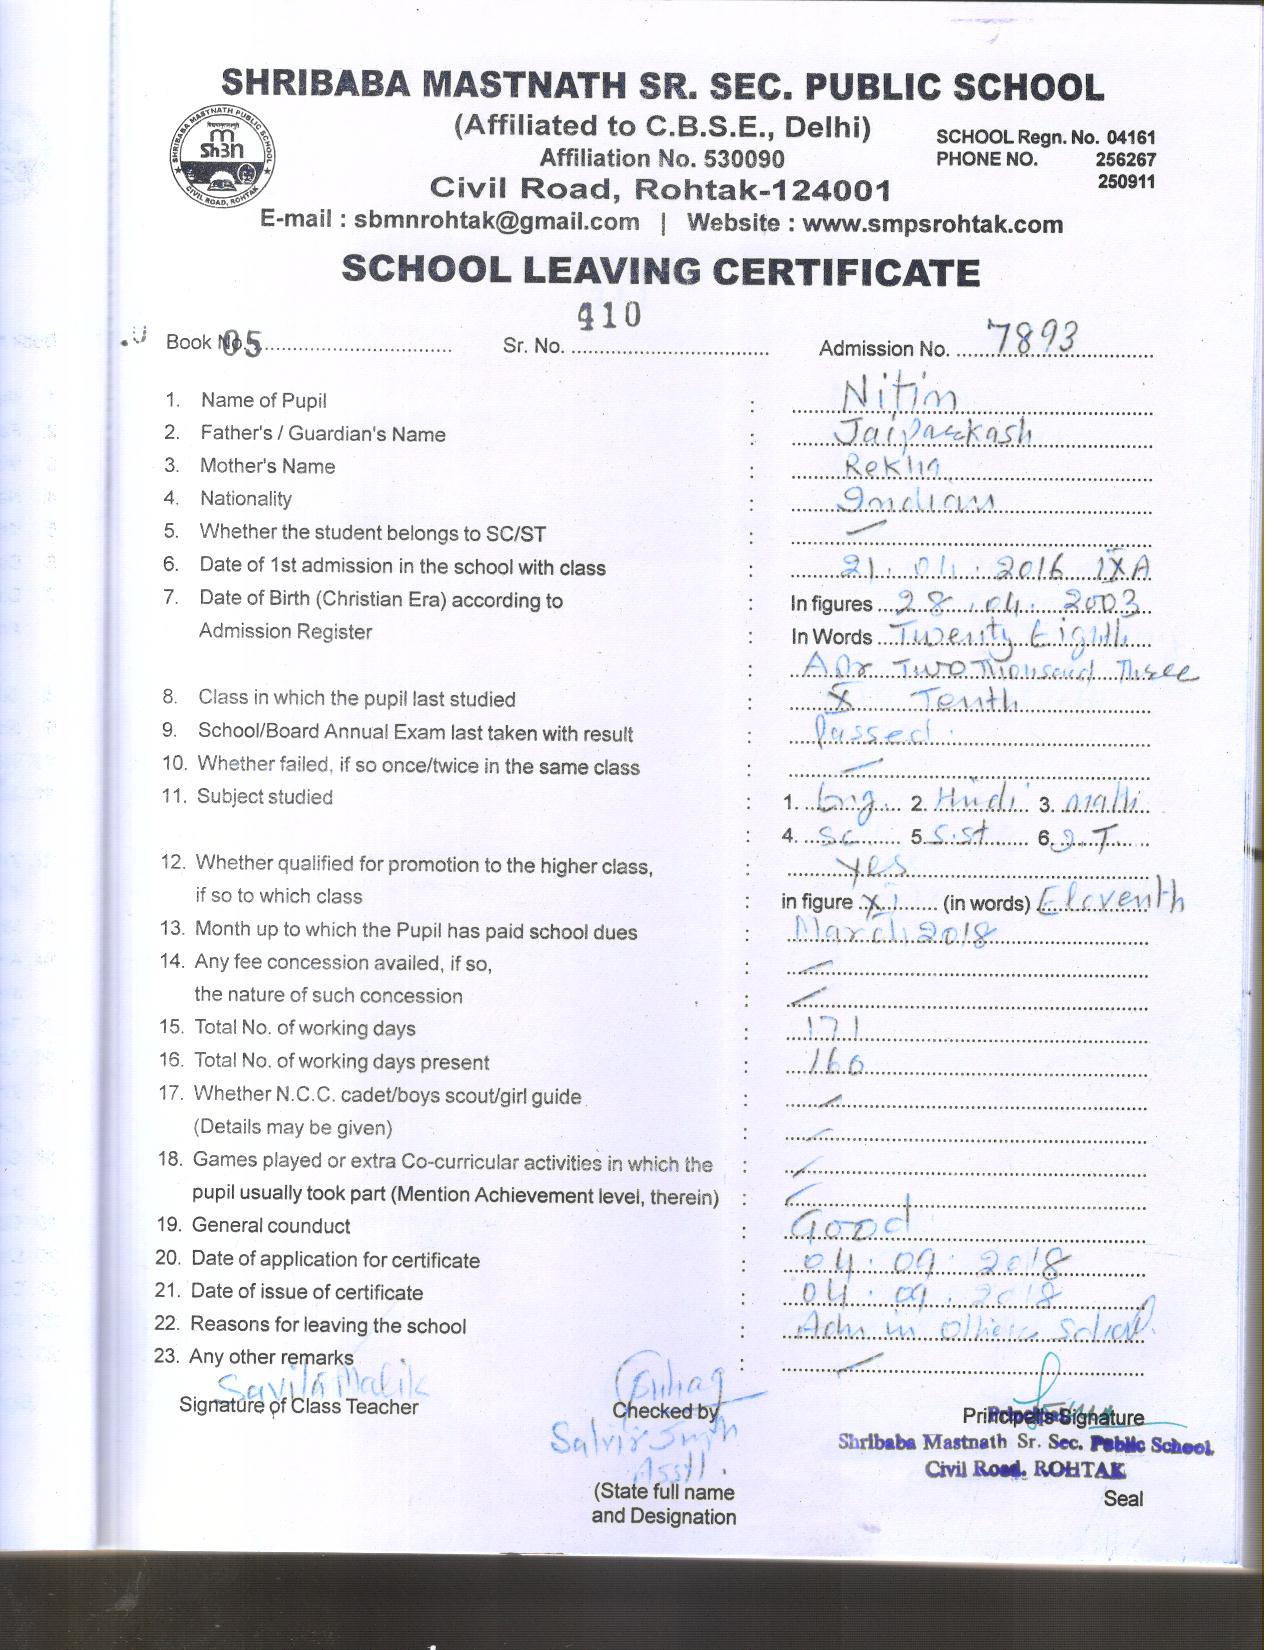 SHRIBABA MASTNATH SR. SEC. PUBLIC SCHOOL
(Affiliated to C.B.S.E., Delhi)
Affiliation No. 530090
SCHOOL Regn. No. 04161
PHONE NO. 256267
250911
Civil Road, Rohtak-124001
E-mail : sbmnrohtak@gmail.com | Website : www.smpsrohtak.com
SHRIBABA MASTNATH PUBLIC SCHOOL
CIVIL ROAD, ROHTAK
SCHOOL LEAVING CERTIFICATE
410
Book No. 05 Sr. No. Admission No. 7893
1. Name of Pupil : Nitin
2. Father's / Guardian's Name : Jaiparkash
3. Mother's Name : Rekha
4. Nationality : Indian
5. Whether the student belongs to SC/ST : —
6. Date of 1st admission in the school with class : 21.04.2016 IXA
7. Date of Birth (Christian Era) according to : In figures 28.04.2003
Admission Register : In Words Twenty Eighth
: Apr Two Thousand Three
8. Class in which the pupil last studied : X Tenth
9. School/Board Annual Exam last taken with result : Passed.
10. Whether failed, if so once/twice in the same class : —
11. Subject studied : 1. Eng. 2. Hindi 3. Math
: 4. Sc 5. S.st 6. I.T
12. Whether qualified for promotion to the higher class, : Yes
if so to which class : in figure XI (in words) Eleventh
13. Month up to which the Pupil has paid school dues : March 2018
14. Any fee concession availed, if so, : —
the nature of such concession : —
15. Total No. of working days : 171
16. Total No. of working days present : 160
17. Whether N.C.C. cadet/boys scout/girl guide : —
(Details may be given) : —
18. Games played or extra Co-curricular activities in which the : —
pupil usually took part (Mention Achievement level, therein) : —
19. General counduct : Good
20. Date of application for certificate : 04.09.2018
21. Date of issue of certificate : 04.09.2018
22. Reasons for leaving the school : Adm in other school.
23. Any other remarks : —
Savita Malik
Signature of Class Teacher
Checked by
Asstt.
(State full name
and Designation
Principal's Signature
Shribaba Mastnath Sr. Sec. Public School
Civil Road, ROHTAK
Seal